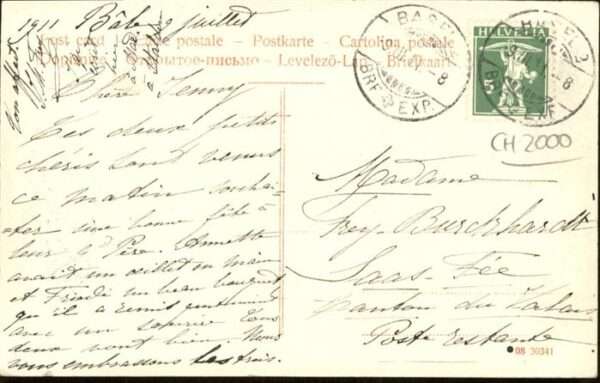 1911 Bâle 9 juillet
Post card Carte postale - Postkarte - Cartolina postale
Dopisnice Открытое письмо - Levelező-Lap - Briefkaart
Chère Jenny
Tes deux petits
chéris sont venus
ce matin souhai-
ter une bonne fête à
leur Père. Annette
avait un oeillet en main
et Friedi un beau bouquet
qu'il a remis gentiment
avec un sourire. Tous
deux vont bien. Nous
vous embrassons tes trois.
HELVETIA
5
BASEL 2
BRF. EXP.
8
BASEL 2
EXP.
8
CH 2000
Madame
Frey-Burckhardt
Saas-Fée
canton du Valais
Poste restante
08 30341